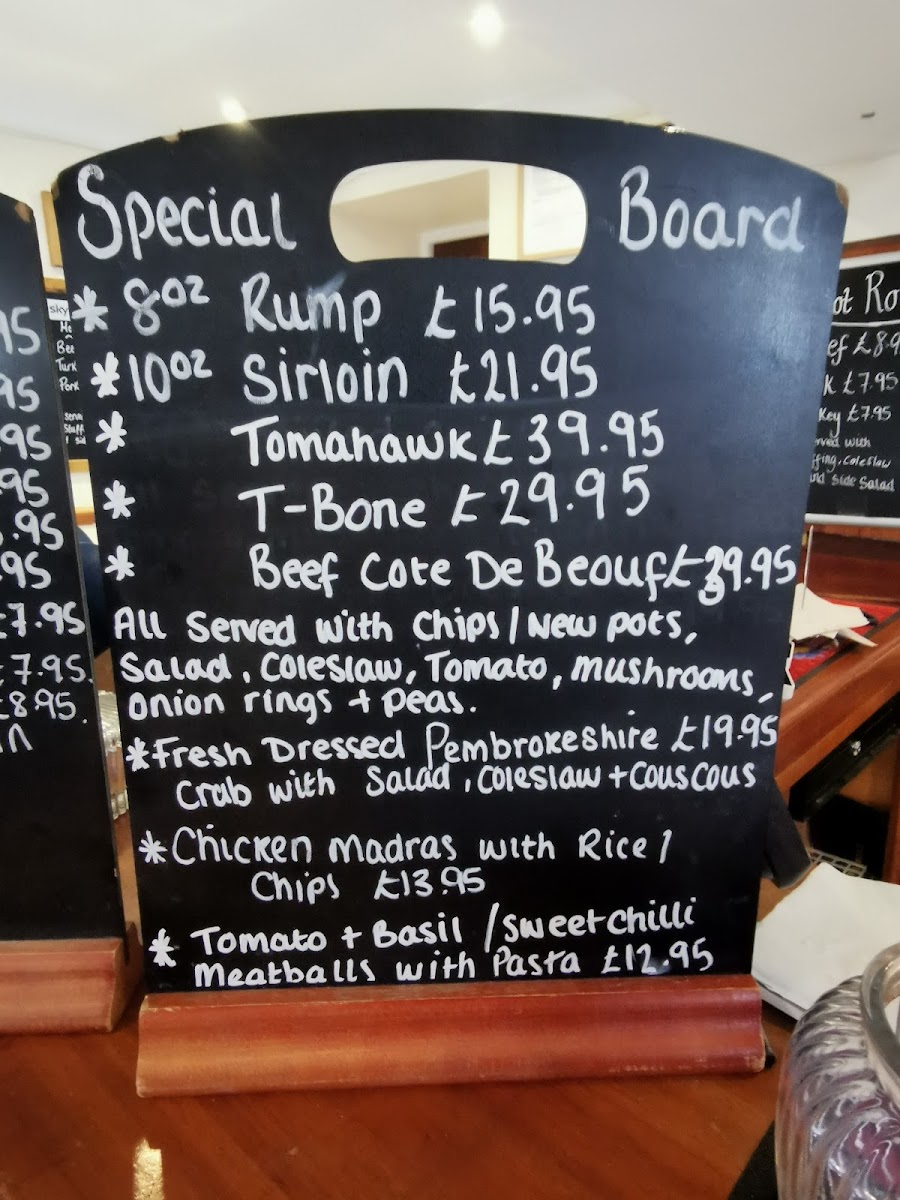 Special Board
* 8oz Rump £15.95
* 10oz Sirloin £21.95
* Tomahawk £39.95
* T-Bone £29.95
* Beef Cote De Beouf £39.95
All Served with Chips / New pots,
Salad, Coleslaw, Tomato, mushrooms,
onion rings + peas.
*Fresh Dressed Pembrokeshire £19.95
Crab with Salad, Coleslaw + Couscous
*Chicken Madras with Rice /
Chips £13.95
* Tomato + Basil / Sweet chilli
Meatballs with Pasta £12.95
95
95
.95
.95
.95
.95
£7.95
£7.95.
£8.95.
sky
Bee
Turk
Pork
ot Ro
ef £8.9
k £7.95
key £7.95
rved with
ffing, Coleslaw
and Side Salad